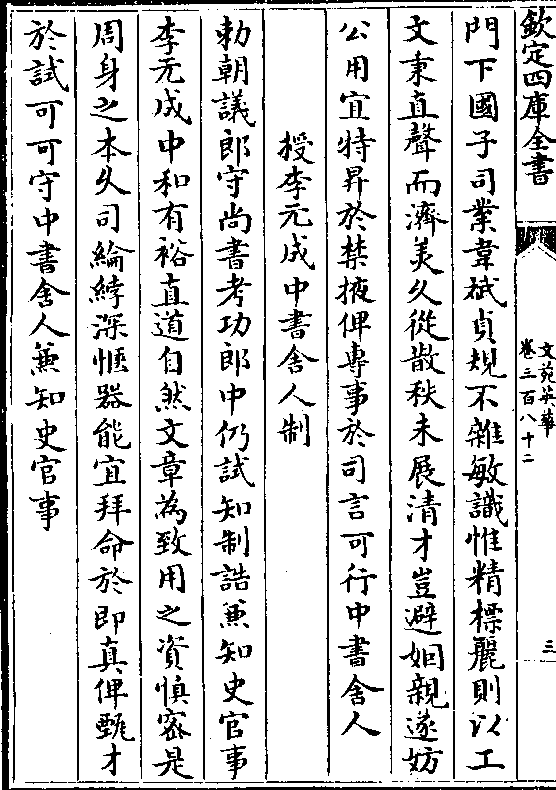 欽定四庫全書
文苑英華
卷三百八十二
三
門下國子司業韋斌貞規不雜敏識惟精標麗則以工
文秉直聲而濟美久從散秩未展清才豈避姻親遂妨
公用宜特昇於禁掖俾專事於司言可行中書舍人
授李元成中書舍人制
勅朝議郎守尚書考功郎中仍試知制誥兼知史官事
李元成中和有裕直道自然文章為致用之資慎密是
周身之本久司綸綍深愜器能宜拜命於即真俾甄才
於試可可守中書舍人兼知史官事